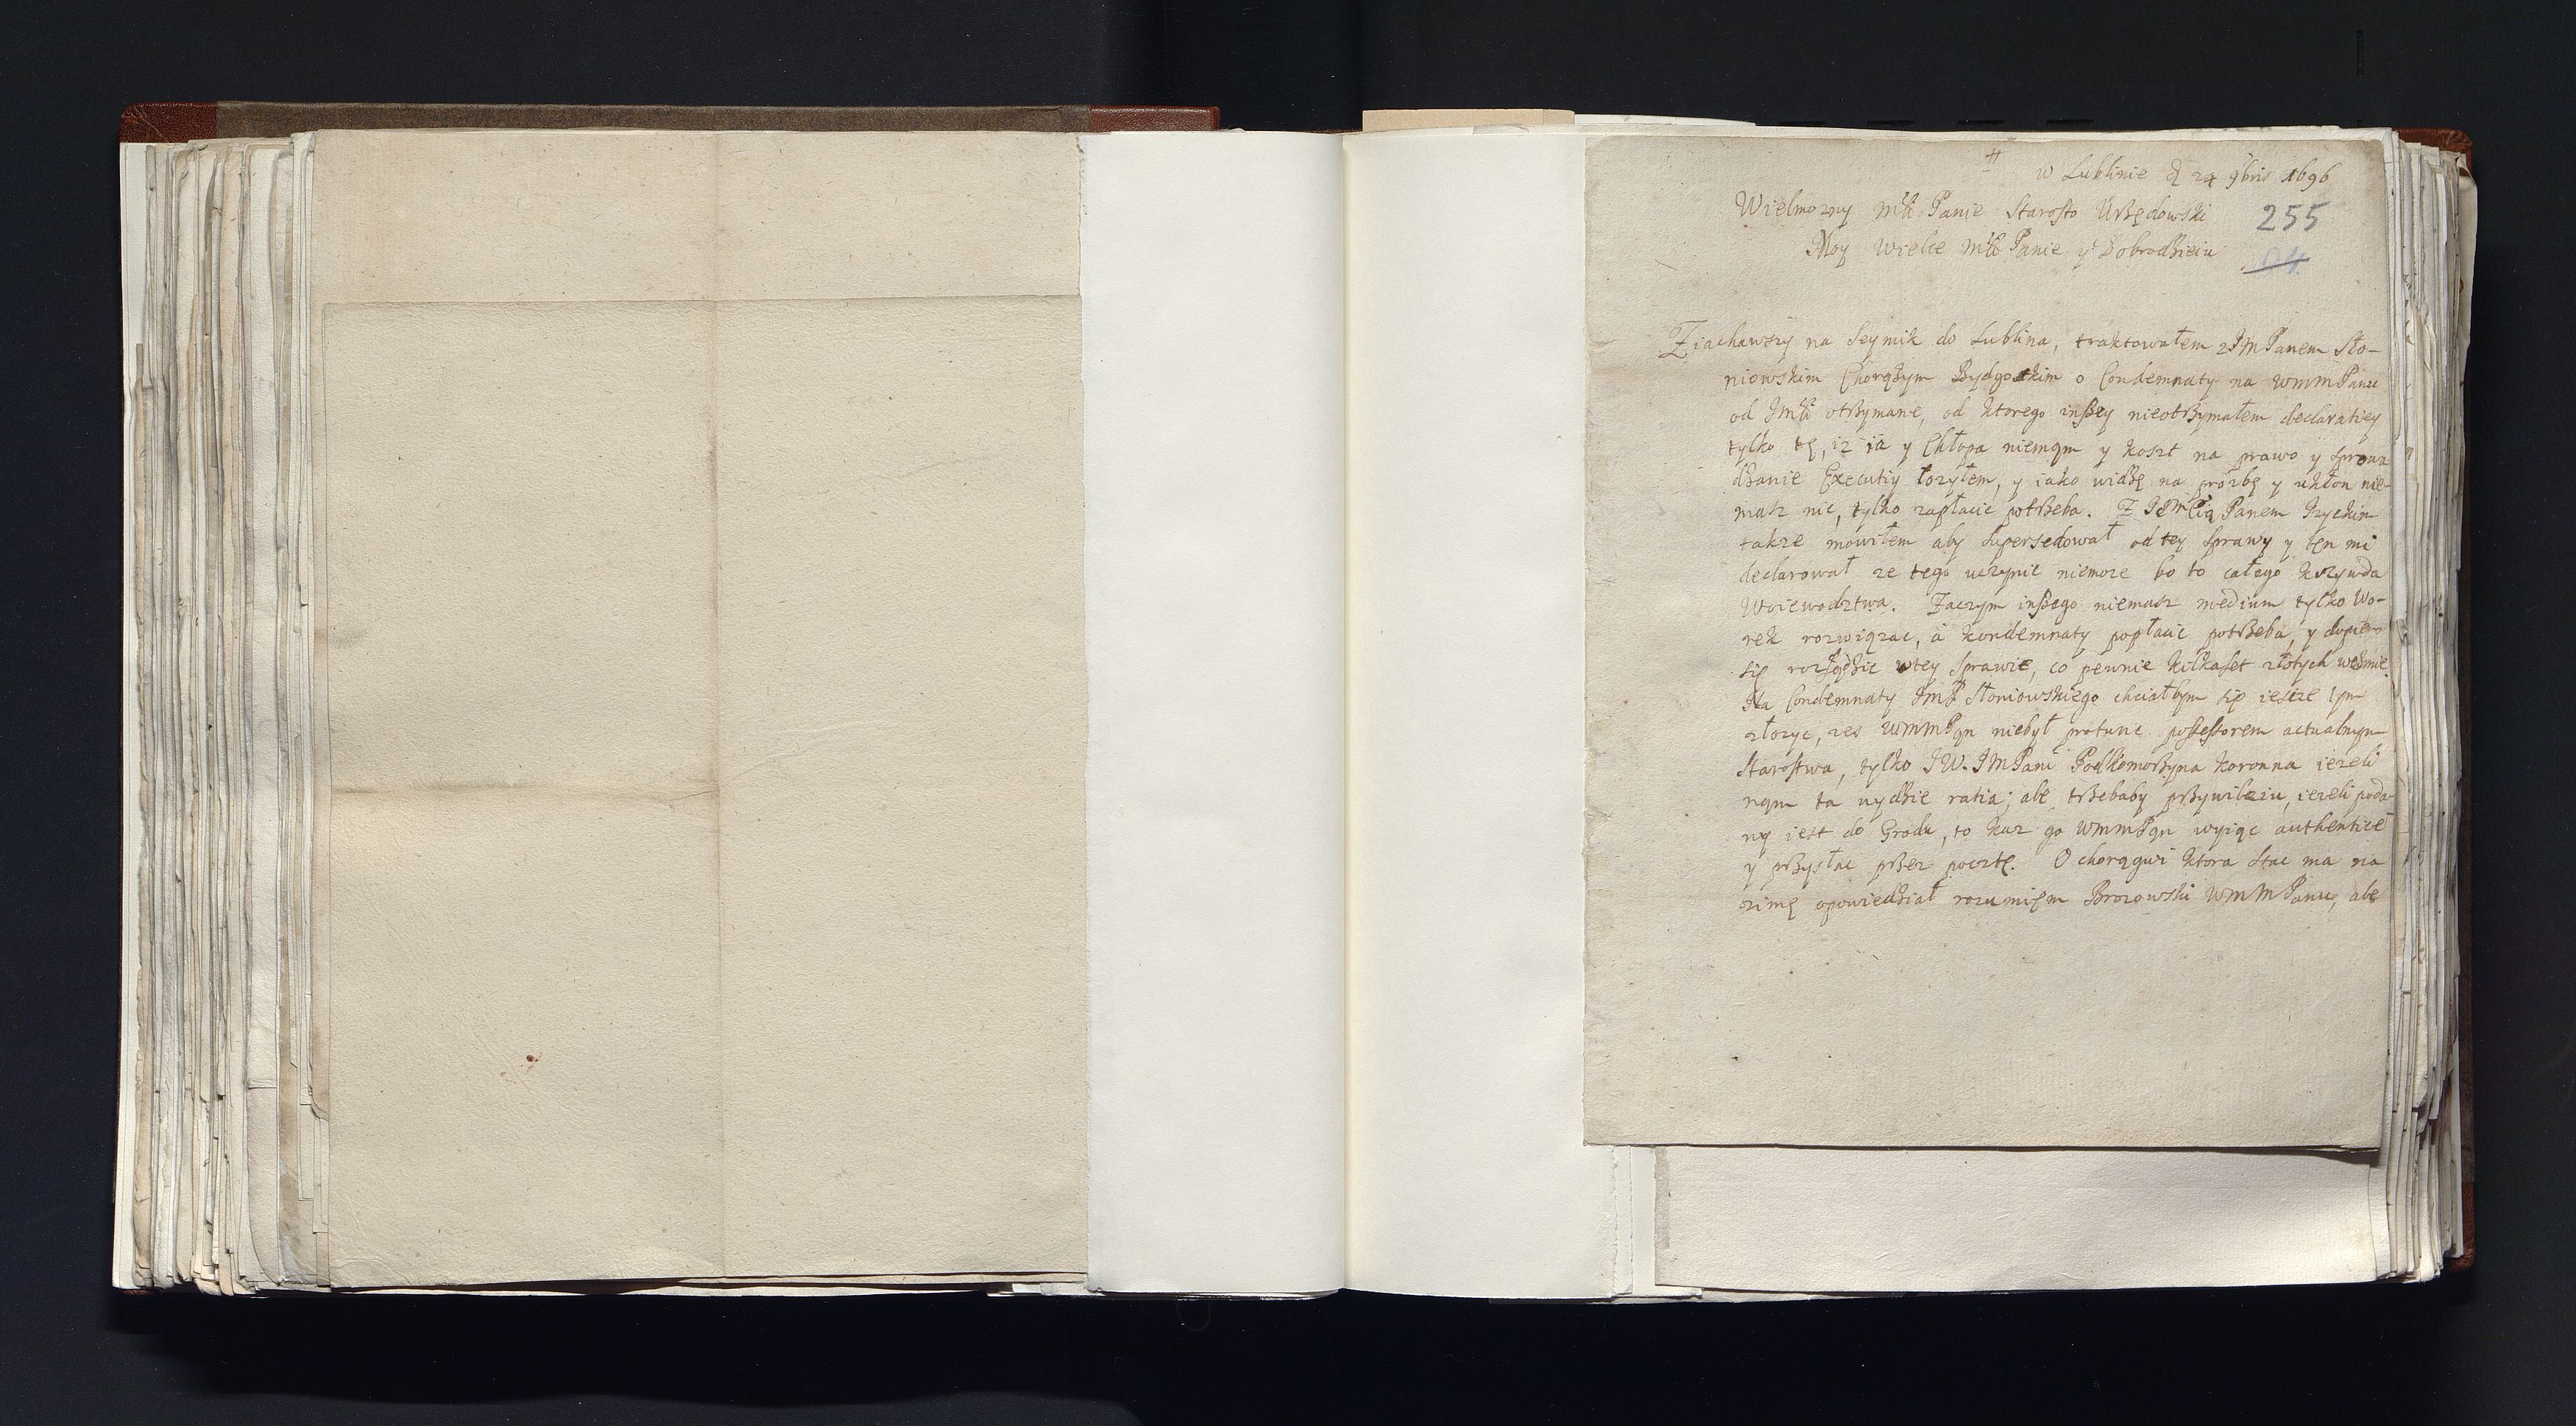 #
w Lublinie d 24 9bris 1696
Wielmozny Mści Panie Starosto Urzędowski
255
Moy Wielce Mści Panie y Dobrodzieiu
Ziachawszy na Seymik do Lublina, traktowałem z JM Panem Sło-
niowskim Chorążym Bydgoskim o Condemnaty na WMMPanu
od JMści otrzymane, od ktorego inszey nieotrzymałem declaratiey
tylko tę, iz ia y Chłopa niemam y koszt na prawo y sprowa
dzanie Executiy łozyłem, y iako widzę na prozbę y ukłon nie-
masz nic, tylko zapłacic potrzeba. Z Panem
takze mowiłem aby supersedował od tey sprawy y ten mi
declarował ze tego uczynic niemoze bo to całego krzywda
Woiewodztwa. Zaczym inszego niemasz medium tylko Wo-
rek rozwiązac, à kondemnaty popłacic potrzeba, y dopiero
się w tey sprawie, co pewnie kilkaset złotych wezmie.
Na Condemnaty JmP Słoniowskiego chciałbym się ieszcze tym
złozyc, zes WMMPan niebył protunc possessorem actualnym
Starostwa, tylko JW. JMPani Podkomorzyna Koronna iezeli
nam ta uydzie ratia; ale trzebaby przywileiu, iezeli poda-
ny iest do Grodu, to kaz go WMMPan wyiąc authentice
y przysłac przez pocztę. O chorągwi ktora stac ma na
zimę opowiedział rozumiem Brozowski WMMPanu, ale